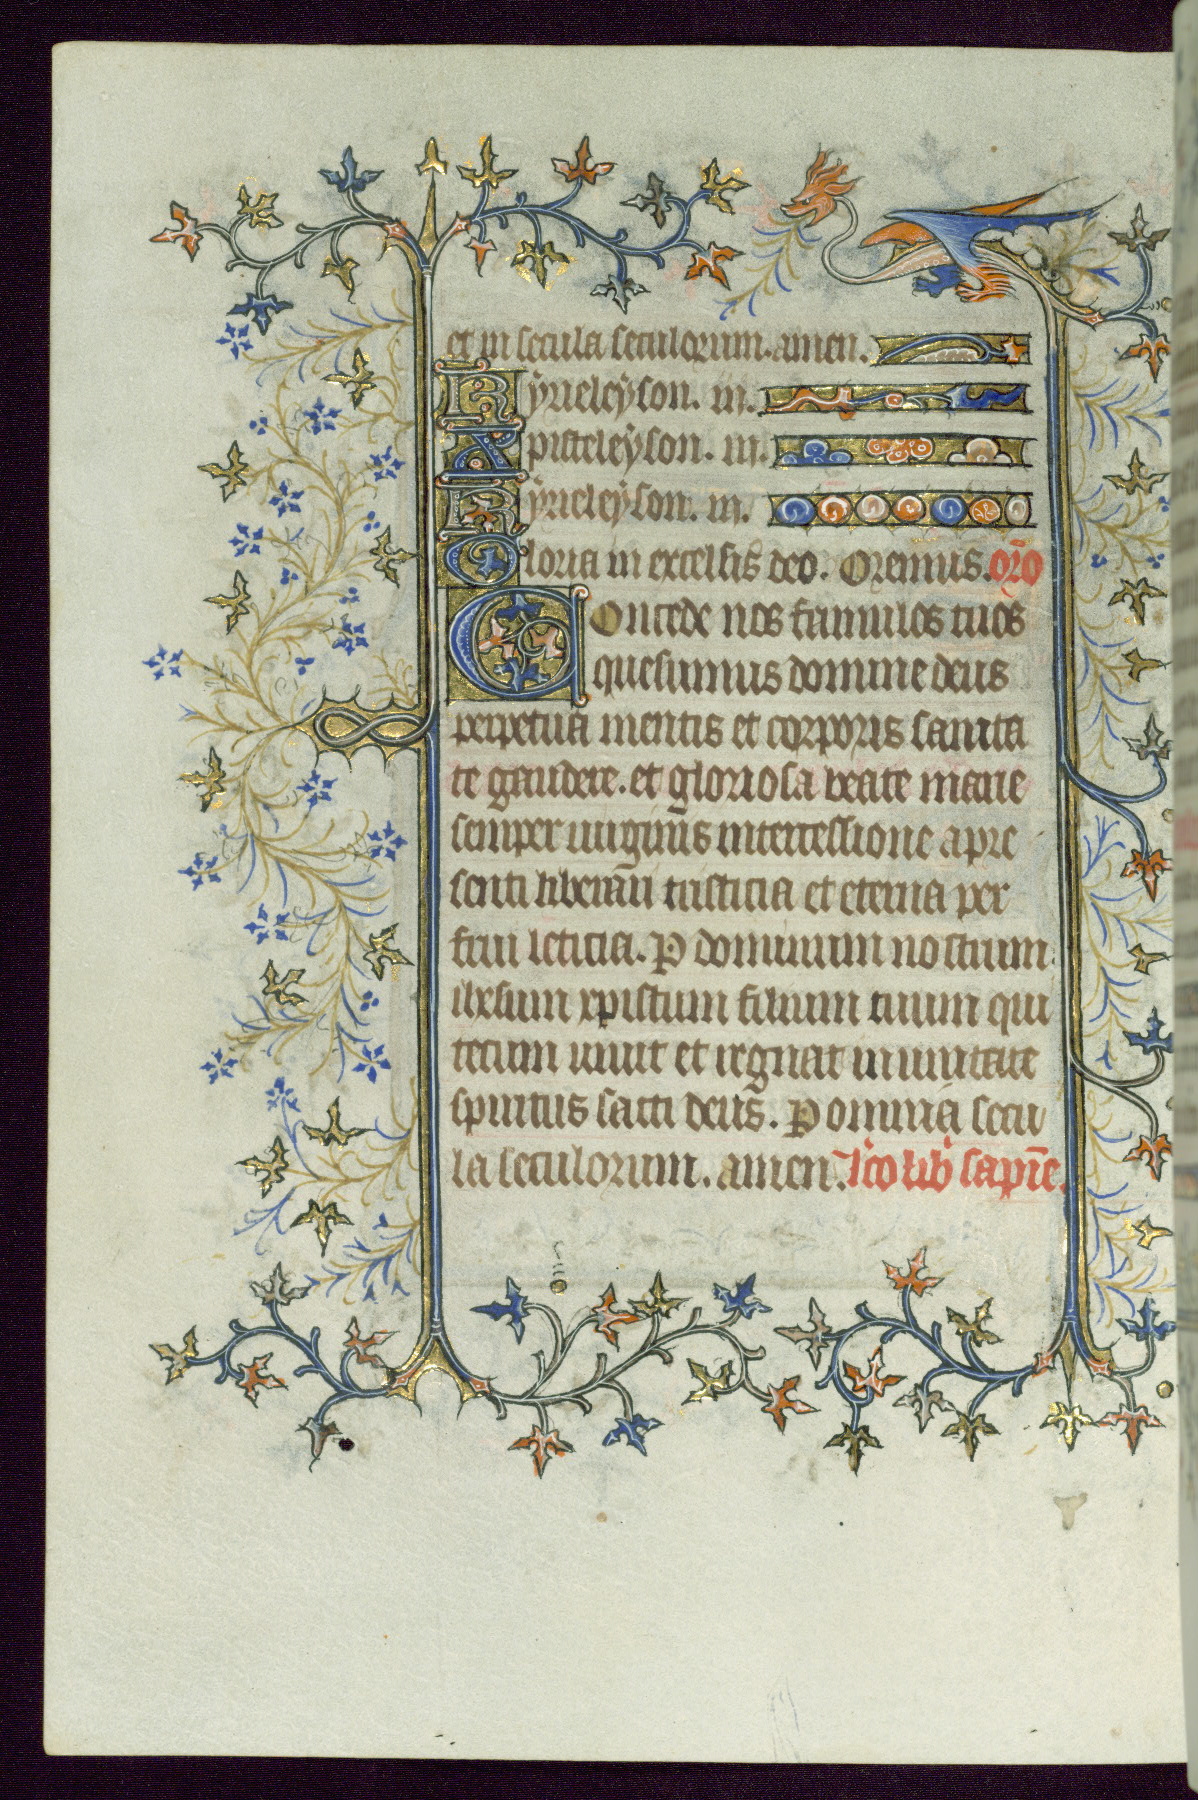 et in secula seculorum. amen.
Kyrieleyson. iii.
Xpisteleyson. iii.
Kyrieleyson. iii.
Gloria in excelsis deo. Oremus. or̄o
Concede nos famulos tuos
quesumus domine deus
perpetua mentis et corporis sanita
te gaudere. et gloriosa beate marie
semper uirginis intercessione a pre
senti liberari tristicia et eterna per
frui leticia. P dominum nostrum
ihesum xpistum filium tuum qui
tecum uiuit et regnat in unitate
spiritus sācti deus. P omnia secu
la seculorum. amen. lc̄o lib̄ sapīe.